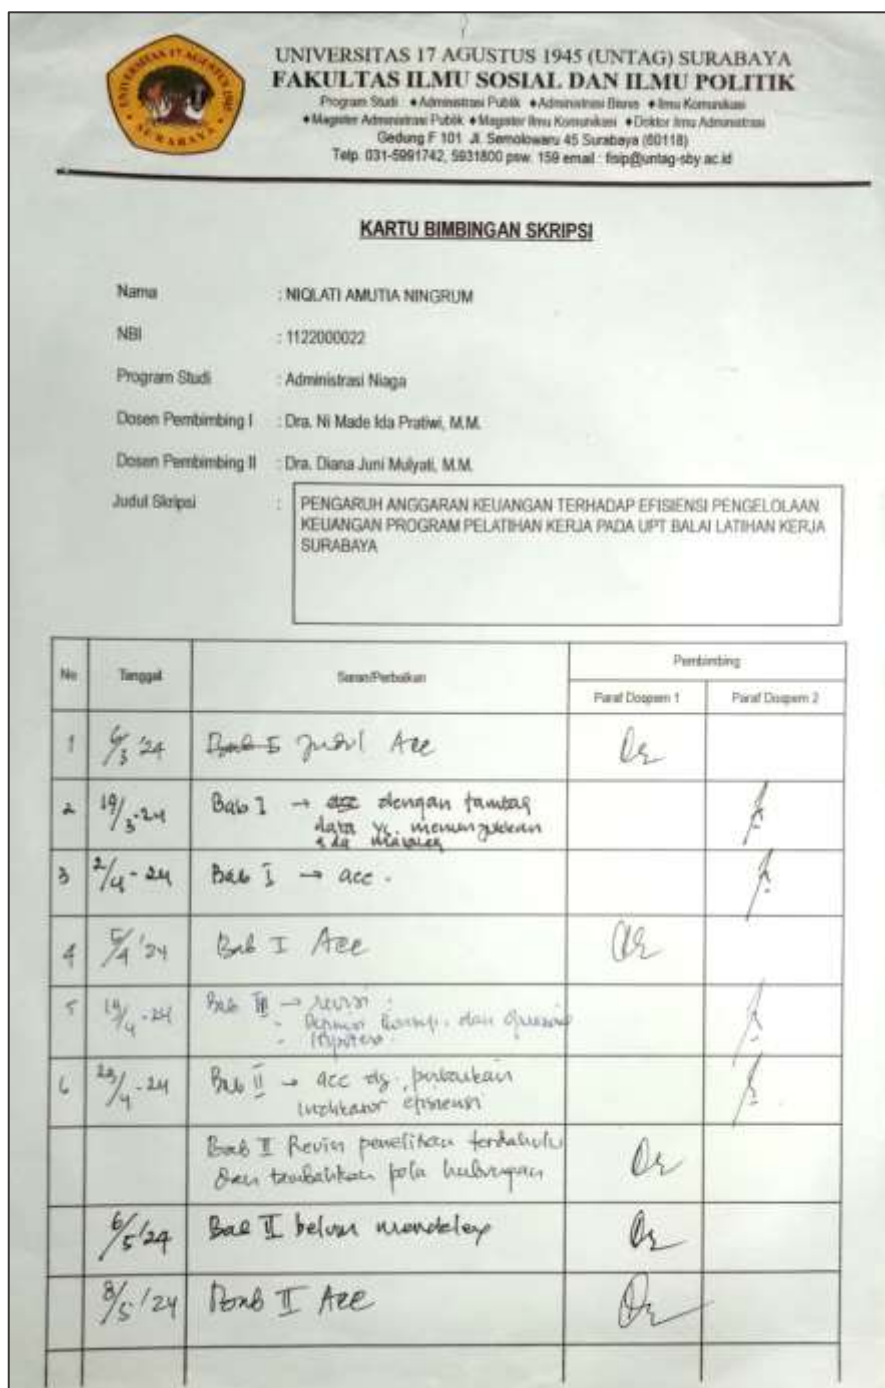 UNIVERSITAS 17 AGUSTUS 1945 (UNTAG) SURABAYA
FAKULTAS ILMU SOSIAL DAN ILMU POLITIK
Program Studi : ♦Administrasi Publik ♦Administrasi Bisnis ♦Ilmu Komunikasi
♦Magister Administrasi Publik ♦Magister Ilmu Komunikasi ♦Doktor Ilmu Administrasi
Gedung F 101 Jl. Semolowaru 45 Surabaya (60118)
Telp. 031-5991742, 5931800 psw. 159 email : fisip@untag-sby.ac.id
UNIVERSITAS 17 AGUSTUS 1945
SURABAYA
KARTU BIMBINGAN SKRIPSI
Nama : NIQLATI AMUTIA NINGRUM
NBI : 1122000022
Program Studi : Administrasi Niaga
Dosen Pembimbing I : Dra. Ni Made Ida Pratiwi, M.M.
Dosen Pembimbing II : Dra. Diana Juni Mulyati, M.M.
Judul Skripsi : PENGARUH ANGGARAN KEUANGAN TERHADAP EFISIENSI PENGELOLAAN
KEUANGAN PROGRAM PELATIHAN KERJA PADA UPT BALAI LATIHAN KERJA
SURABAYA
No Tanggal Saran/Perbaikan Pembimbing
Paraf Dospem 1 Paraf Dospem 2
1 6/3 '24 Judul Acc
2 19/3-24 Bab I → acc dengan tambah
data yg menunjukkan
ada masalah
3 2/4-24 Bab I → acc.
4 5/4 '24 Bab I Acc
5 /4-24 Bab III → revisi :
- dan
- Hipotesis.
6 23/4-24 Bab II → acc dg. perbaikan
indikator efisiensi
Bab II Revisi penelitian terdahulu
dan tambahkan pola hubungan
6/5 '24 Bab II belum mendeley
8/5 '24 Bab II Acc